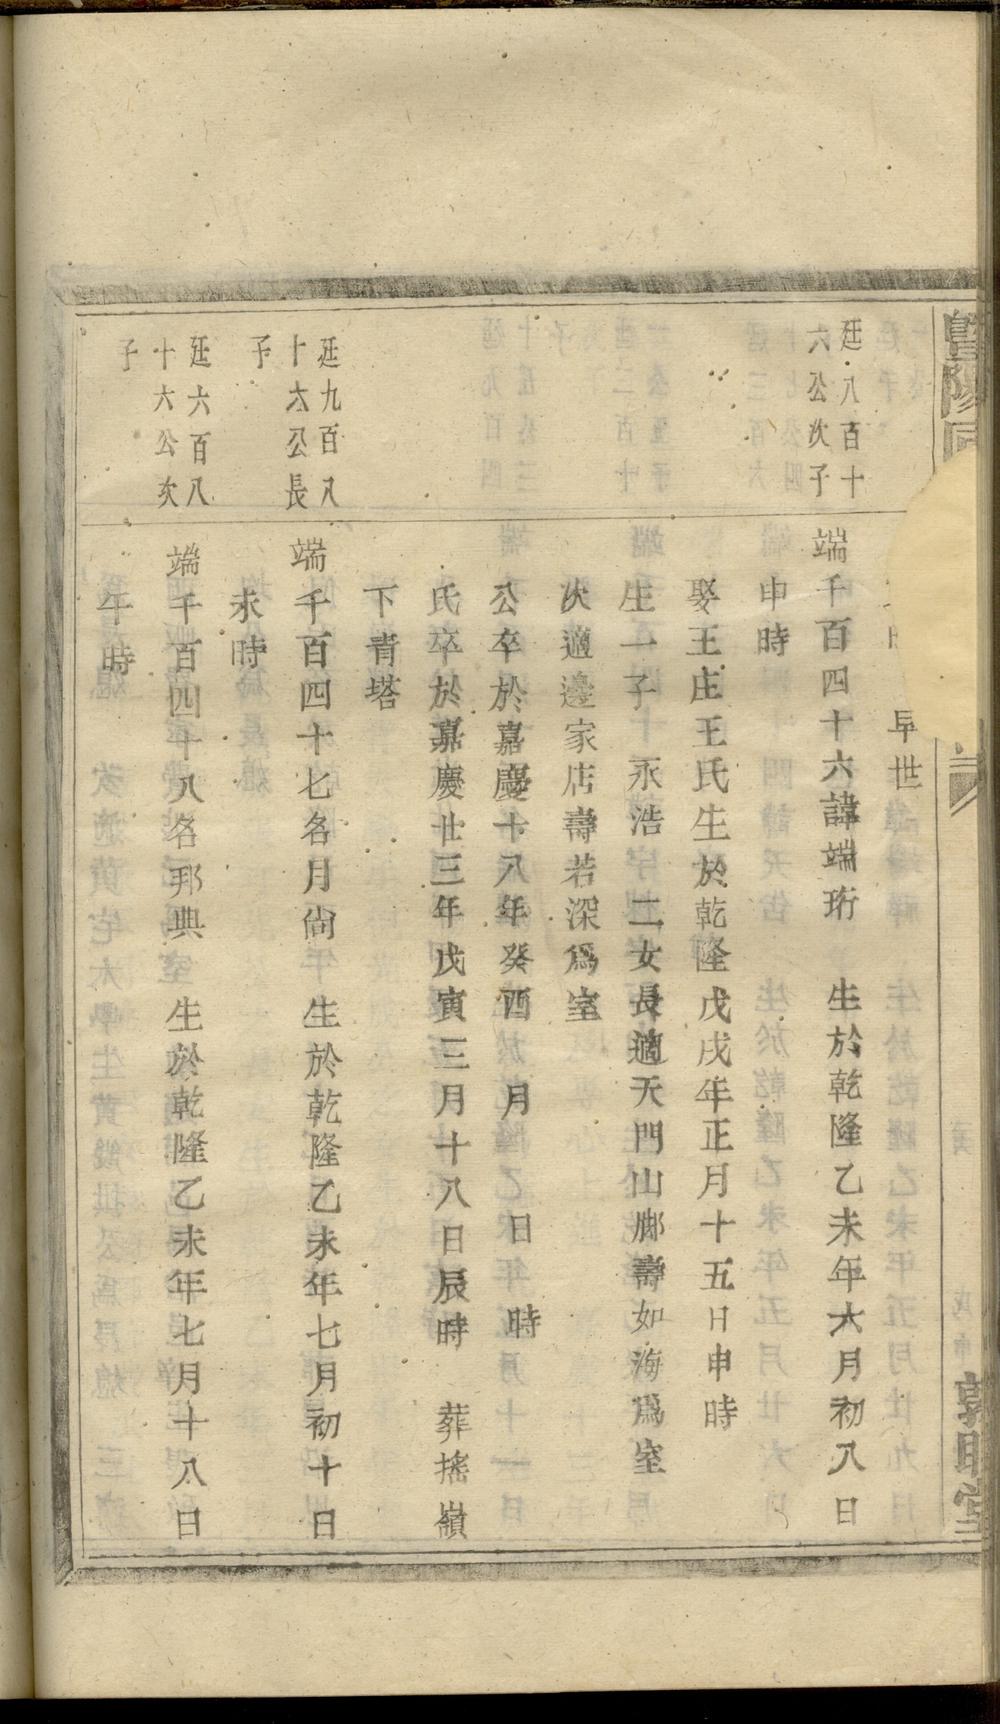 暨陽
敦睦堂
早世
廷八百十
六公次子
端千百四十六諱端珩 生於乾隆乙未年六月初八日
申時
娶王庄王氏生於乾隆戊戌年正月十五日申時
生一子 永浩 二女長適天門山腳壽如海爲室
次適邊家店壽若深爲室
公卒於嘉慶十八年癸酉 月 日 時
氏卒於嘉慶廿三年戊寅三月十八日辰時 葬搖嶺
下青塔
廷九百八
十六公長
子
端千百四十七名月尙 生於乾隆乙未年七月初十日
未時
廷六百八
十六公次
子
端千百四十八名邦典 生於乾隆乙未年七月十八日
午時